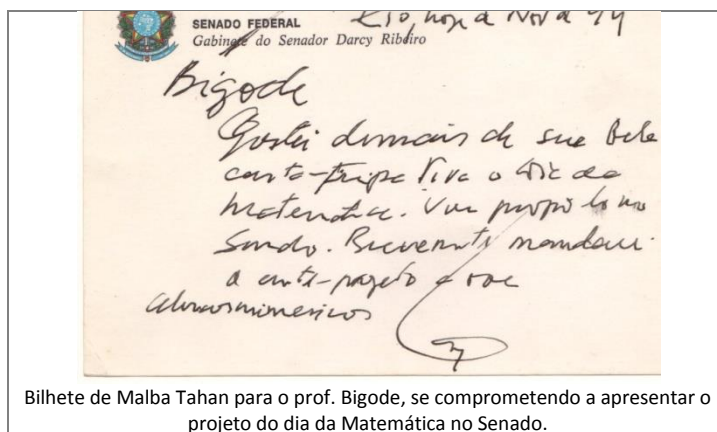 SENADO FEDERAL
Gabinete do Senador Darcy Ribeiro
Bigode
Gostei demais de sua bela
carta- Viva o Dia da
Matemática. Vou propô-lo no
Senado. Brevemente mandarei
o ante-projeto a
Bilhete de Malba Tahan para o prof. Bigode, se comprometendo a apresentar o
projeto do dia da Matemática no Senado.